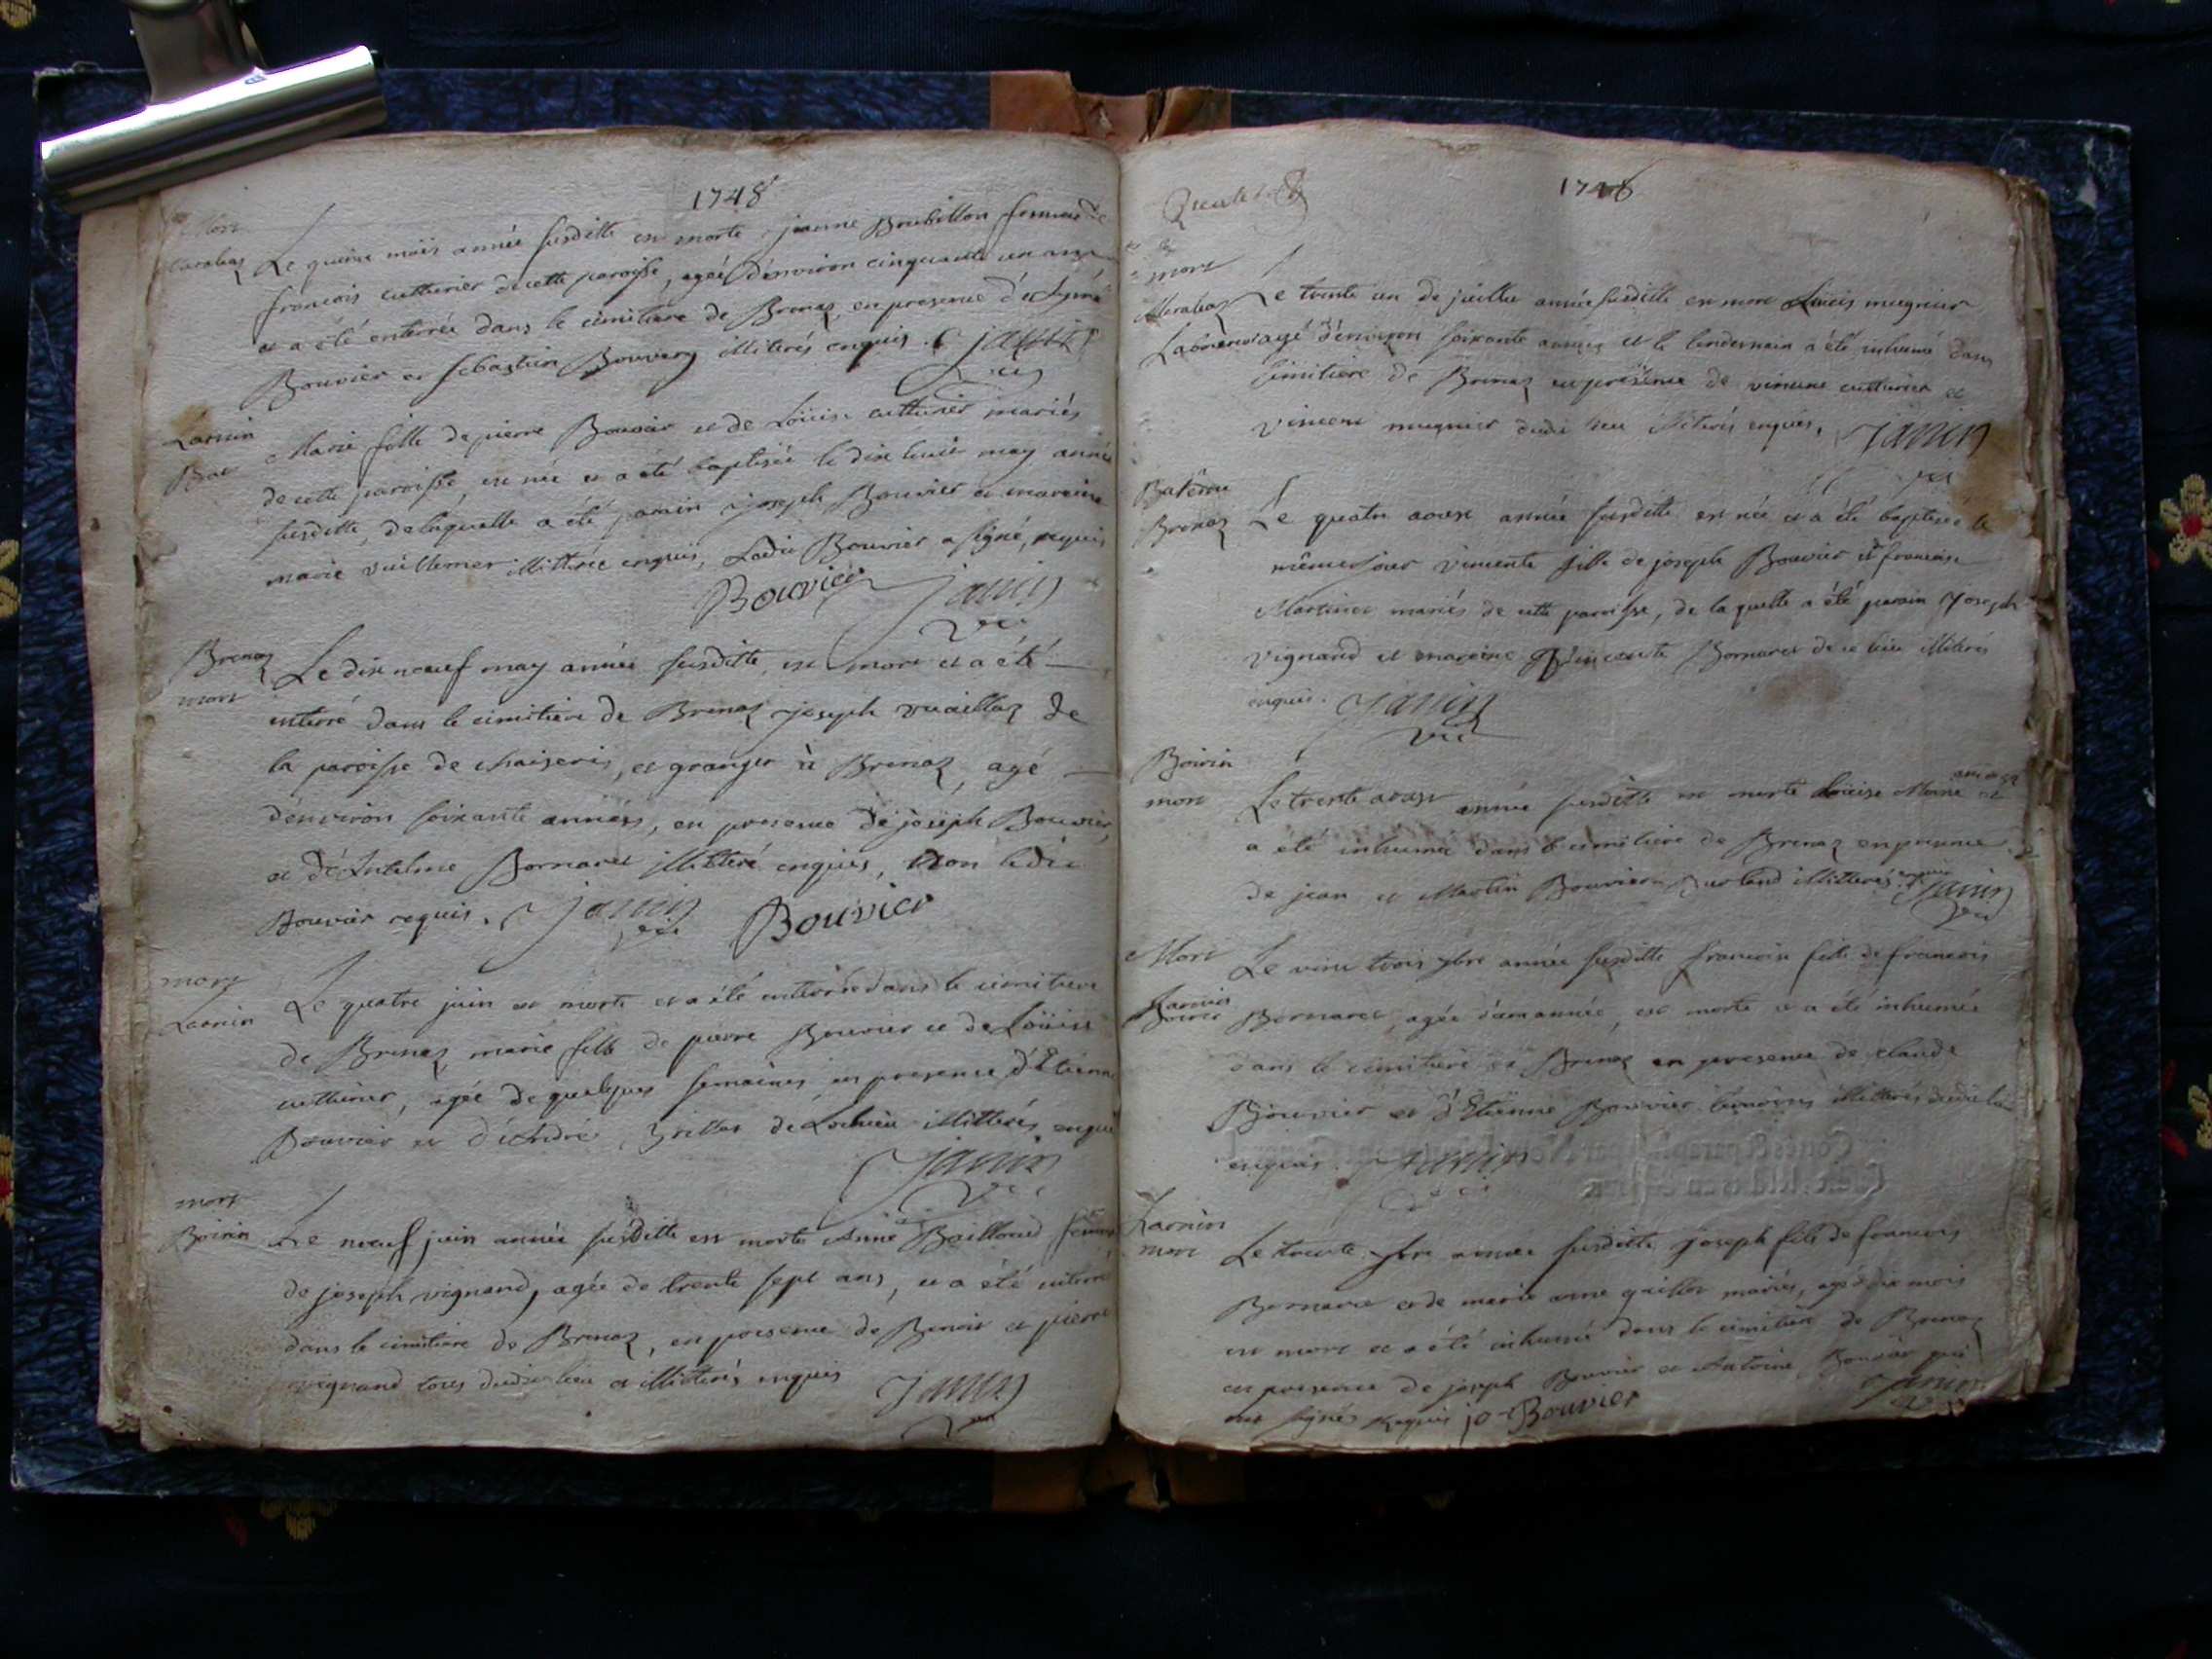 1748
Mort
Le quinze mais année susditte est morte jeanne Boubillon femme de
françois cutturier de cette paroisse, agée d'environ cinquante un ans
et a été enterrée dans le cimitiere de Brenaz, en presence d'
Bouvier et sebastien Bouvery illiterés enquis. janin
vic
Larnin
Bat
Marie fille de pierre Bouvier et de Loüise cutturier mariés
de cette paroisse, est née et a été baptisée le dix huit may année
susditte, de laquelle a été parain joseph Bouvier et maraine
marie vuillemer illitterée enquis, Ledit Bouvier a signé, requis
Bouvier janin
vic
Brenaz
mort
Le dix neuf may année susditte, est mort et a été
enterré dans le cimitiere de Brenaz joseph vuaillaz de
la paroisse de chaiseris, et granger à Brenaz, agé
d'environ soixante années, en presence de joseph Bouvier,
et d'Antelme Bornaret illitteré enquis, Non ledit
Bouvier requis. janin Bouvier
vic
mort
Larnin
Le quatre juin est morte et a été enterrée dans le cimitiere
de Brenaz marie fille de pierre Bouvier et de Loüise
cutturier, agée de quelques semaines en presence d'Etienne
Bouvier et d'André Brillat de Lochieu illitterés enquis
janin
vic
mort
Boirin
Le neuf juin année susditte est morte Anne Bailloud femme
de joseph vignand, agée de trente sept ans, et a été enterrée
dans le cimitiere de Brenaz, en presence de Benoit et pierre
vignand tous dudit lieu et illitterés enquis janin
vic
1748
mort
Le trente un de juillet année susditte est mort Loüis mugnier
agé d'environ soixante années et le lendemain a été inhumé dans
cimitiere de Brenaz en présence de vincent cutturier et
vincent mugnier dudit lieu illiterés enquis. janin
vic
Brenaz
Le quatre aoust année susditte est née et a été baptisée le
même jour vincente fille de joseph Bouvier et françoise
Martinet mariés de cette paroisse, de laquelle a été parain joseph
vignand et maraine vincente Bornaret de ce lieu illiterés
enquis. janin
vic
Boirin
mort
Le trente aoust année susditte est morte Loüise Moine et
a été inhumée dans le cimitiere de Brenaz en presence
de jean et Martin Bouvier illitterés enquis janin
vic
Mort
Larnin
Le vint trois 7bre année susditte françoise fille de françois
Bornaret, agée d'un année, est morte et a été inhumée
dans le cimitiere de Brenaz en presence de claude
Bouvier et d'Etienne Bouvier temoins illitterés dudit lieu
enquis. janin
vic
Larnin
mort
Le trente 7bre année susditte joseph fils de françois
Bornaret et de marie anne mariés, agé dix mois
est mort et a été inhumé dans le cimitiere de Brenaz
en presence de joseph Bouvier et Antoine Bouvier qui
ont signés requis jo Bouvier janin
vic